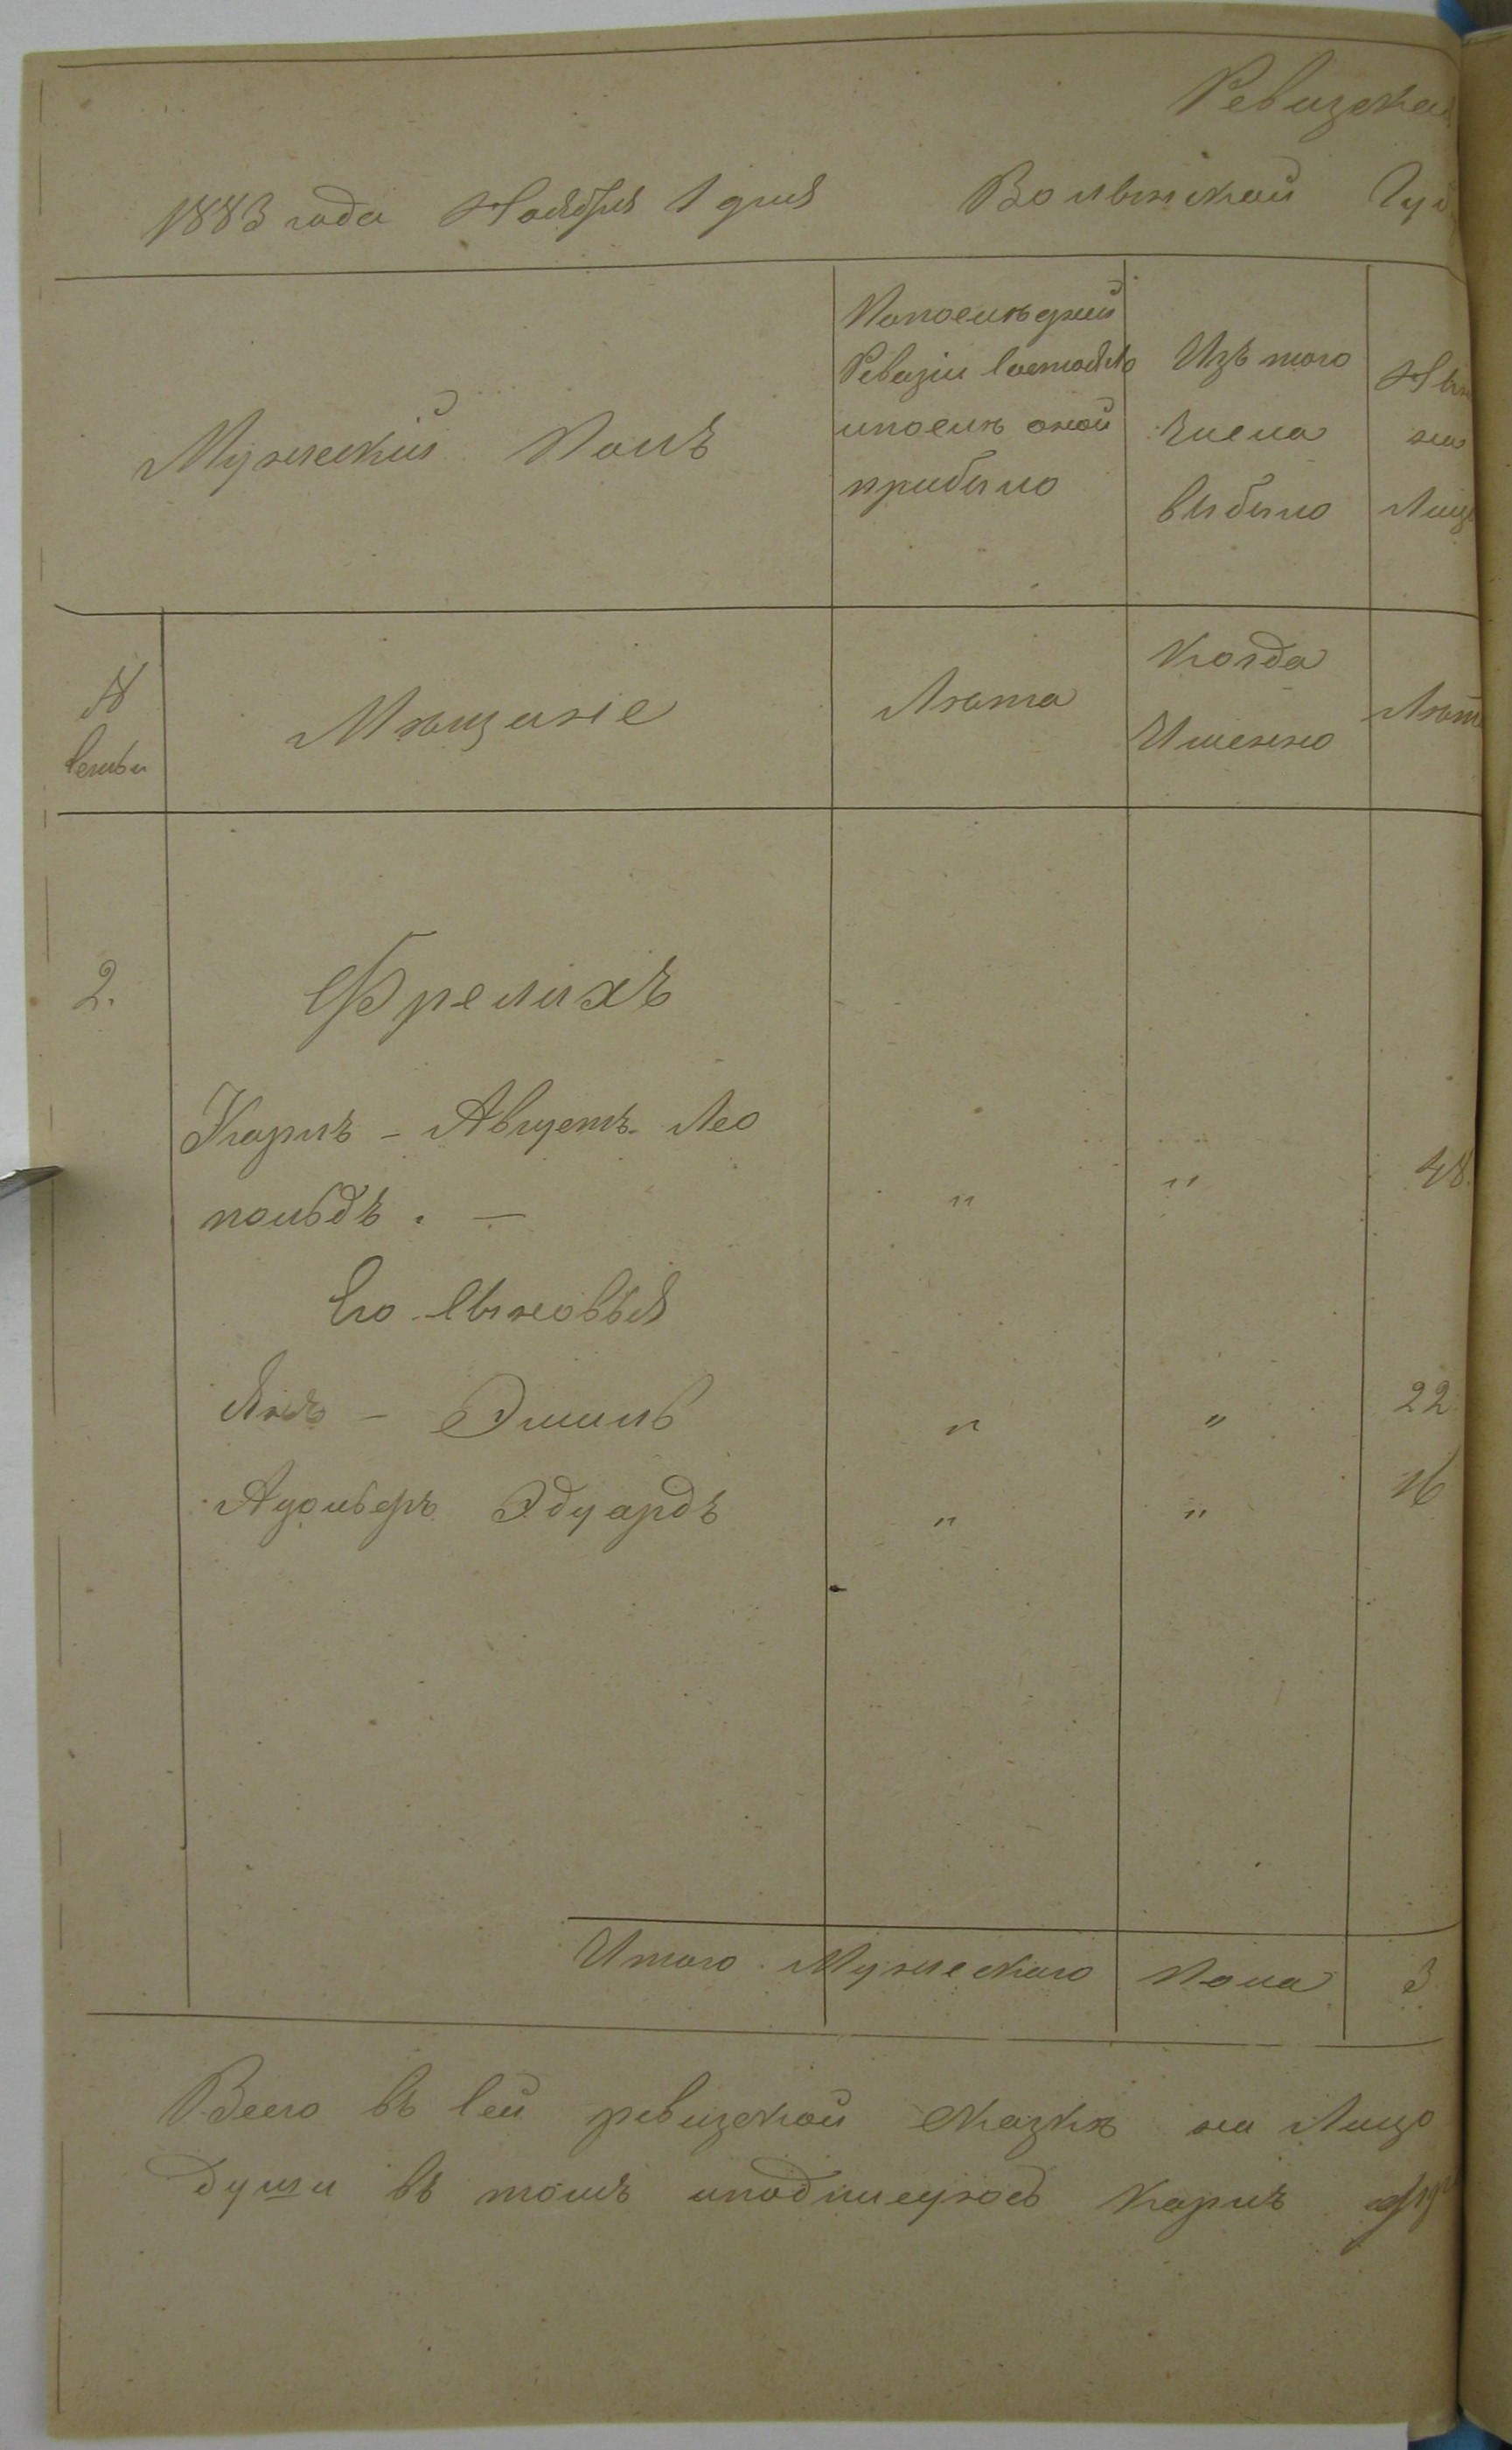 Ревизская
1883 года Ноября 1 дня Волынской Губ
Мужескій Полъ
Попослѣдней
Ревизіи Состояло
ипослѣ оной
прибыло
Изъ того
Числа
выбыло
Нын
на
Лицо
№
Семьи
Мѣщаніе
Лѣта
Когда
Именно
Лѣта
2. Фрелихъ
Карлъ - Августъ. Лео
польдъ. — " " 48.
Его Сыновья
Янъ - Эмиль " " 22
Адольфъ Эдуардъ " " 16
Итого Мужескаго Пола 3
Всего въ сей ревизской сказкѣ на Лицо
души въ томъ иподписуюсь Карлъ Фр